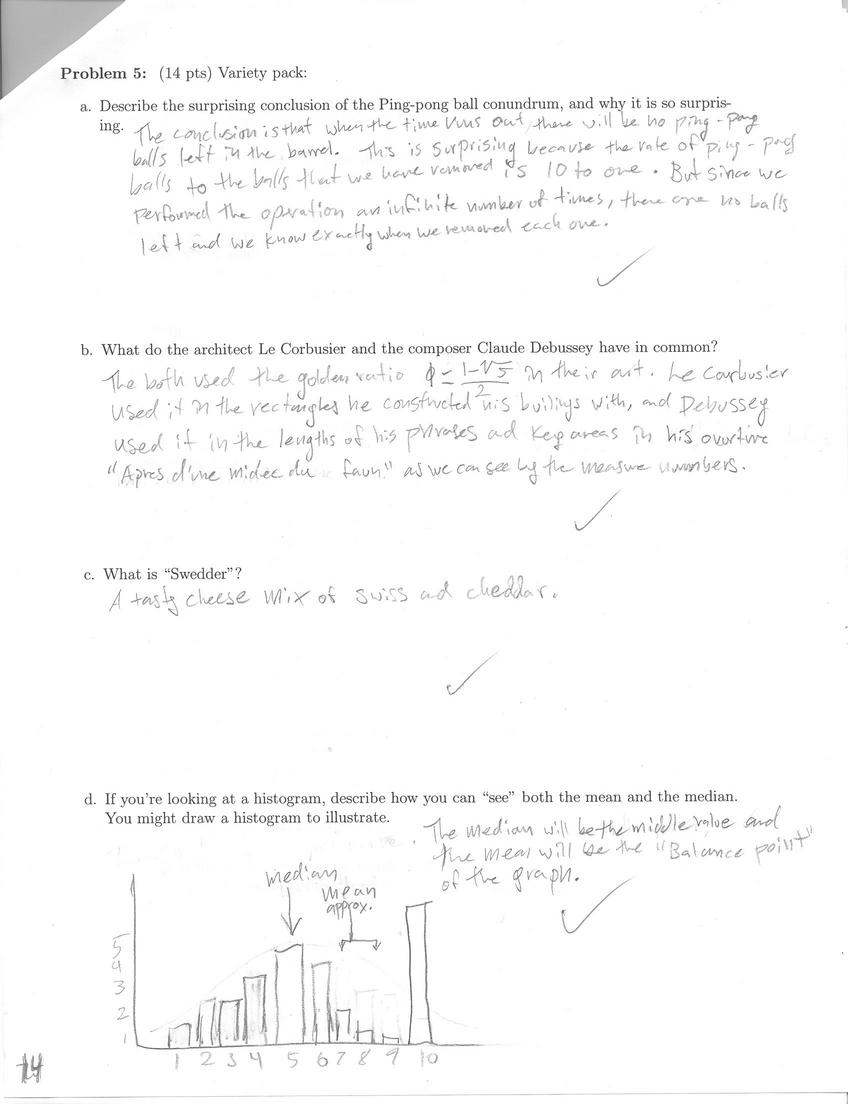 Problem 5: (14 pts) Variety pack:
a. Describe the surprising conclusion of the Ping-pong ball conundrum, and why it is so surpris-
ing. The conclusion is that when the time runs out, there will be no ping-pong
balls left in the barrel. This is surprising because the rate of ping-pong
balls to the balls that we have removed is 10 to one. But since we
performed the operation an infinite number of times, there are no balls
left and we know exactly when we removed each one.
b. What do the architect Le Corbusier and the composer Claude Debussey have in common?
The both used the golden ratio φ = (1-√5)/2 in their art. Le Courbusier
used it in the rectangles he constructed his builings with, and Debussey
used it in the lengths of his phrases ad key areas in his overtire
"Apres d'une midee du faun" as we can see by the measure numbers.
c. What is "Swedder"?
A tasty cheese mix of swiss ad cheddar.
d. If you're looking at a histogram, describe how you can "see" both the mean and the median.
You might draw a histogram to illustrate.
The median will be the middle value and
the mean will be the "Balance point"
of the graph.
median
mean
approx.
5
4
3
2
1
1 2 3 4 5 6 7 8 9 10
14